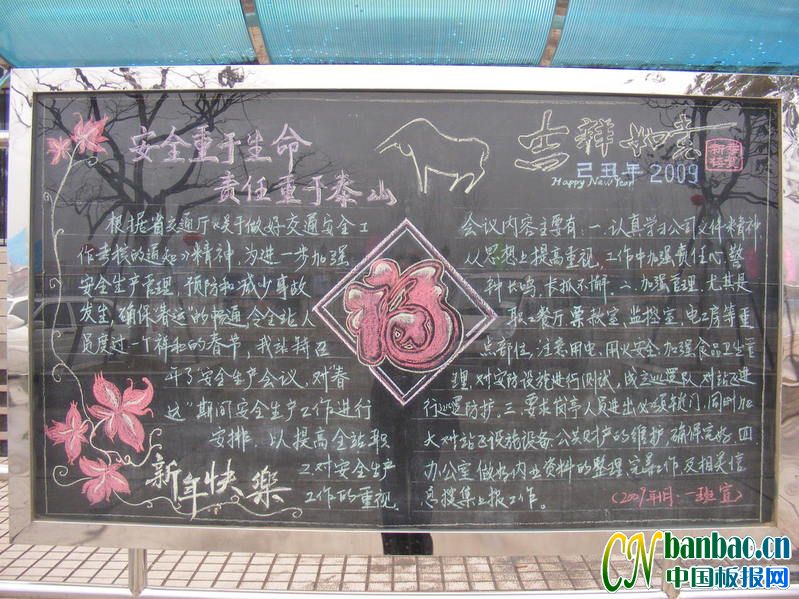 安全重于生命
责任重于泰山
吉祥如意
己丑年
Happy New Year 2009
根据省交通厅《关于做好交通安全工
作考核的通知》精神,为进一步加强
安全生产管理,预防和减少事故
发生,确保春运的畅通,令全站人
员度过一个祥和的春节,我站特召
开了安全生产会议,对"春
运"期间安全生产工作进行
安排,以提高全站职
工对安全生产
工作的重视.
新年快樂
福
会议内容主要有:一.认真学习公司文件精神,
从思想上提高重视,工作中加强责任心,警
钟长鸣,卡抓不懈.二.加强管理,尤其是
职工餐厅,票款室,监控室,电工房等重
点部位,注意用电,用火安全,加强食品卫生管
理,对安防设施进行测试,成立巡逻队,对站区进
行巡逻防护.三.要求岗亭人员进出必须锁门,同时加
大对站区设施设备,公共财产的维护,确保完好.四.
办公室做好内业资料的整理,完善工作及相关信
息搜集上报工作。
(2009年1月·一班宣)
CNbanbao.cn
中国板报网